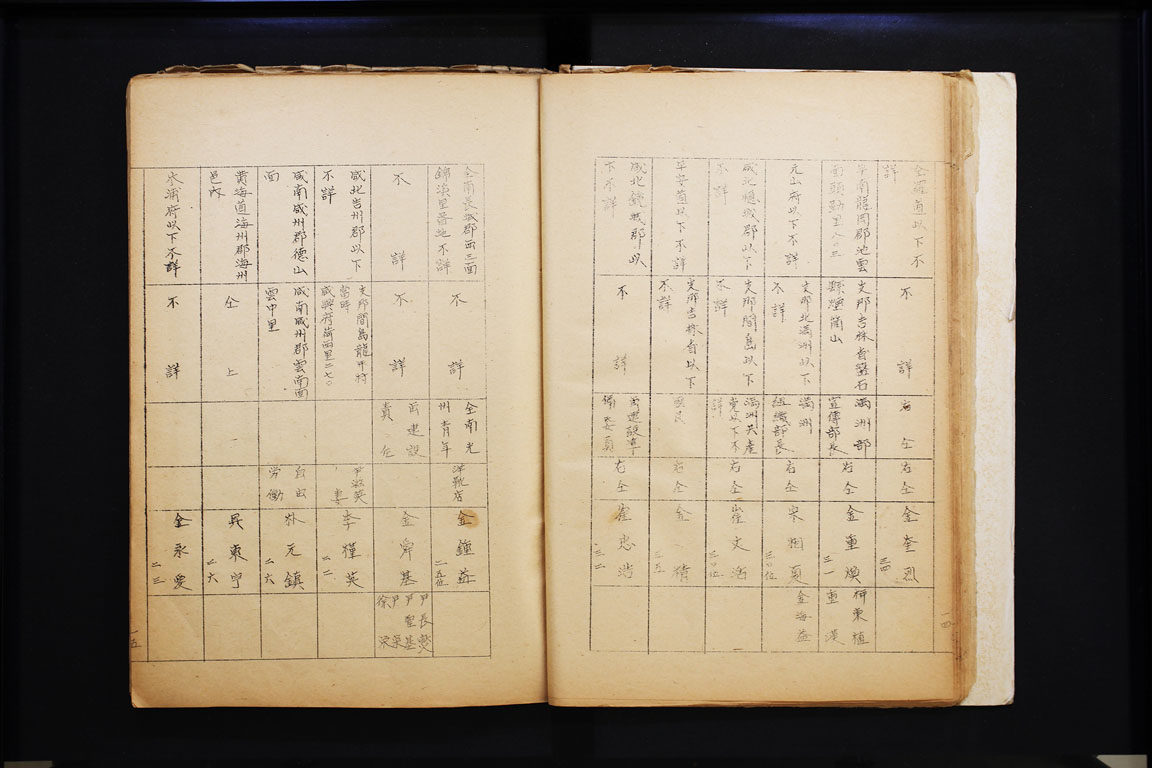 全羅道以下不
詳
不詳
右仝
右仝
金奎烈
三四
平南龍岡郡池雲
面頭勒里八〇三
支那吉林省盤石
縣煙筒山
満洲部
宣傳部長
右仝
金重煥
三一
重漢
元山府以下不詳
支那北満洲以下
不詳
満洲
組織部長
右仝
宋烟夏
三〇位
金海益
咸北穩城郡以下
不詳
支那間島以下
不詳
満洲共産
党以下不
詳
右仝
崔文浩
三〇位
平安道以下不詳
支那吉林省以下
不詳
右仝
金
三五
咸北鏡城郡以
下不詳
不詳
右仝
崔忠浩
三二
一四
全南長城郡西三面
錦渓里番地不詳
不詳
全南光
州青年
洋靴店
金鐘益
二五位
不詳
不詳
再建設
責任
金岸基
尹長燮
尹聖基
尹栄
徐栄
咸北吉州郡以下
不詳
支那間島龍井村
當時
咸興府荷西里二七〇
尹滋英
妻
李槿英
二二
咸南咸州郡德山
面
咸南咸州郡雲南面
雲中里
自由
労働
朴元鎮
二六
黄海道海州郡海州
邑内
仝上
呉東宁
二六
木浦府以下不詳
不詳
金永愛
二三
一五